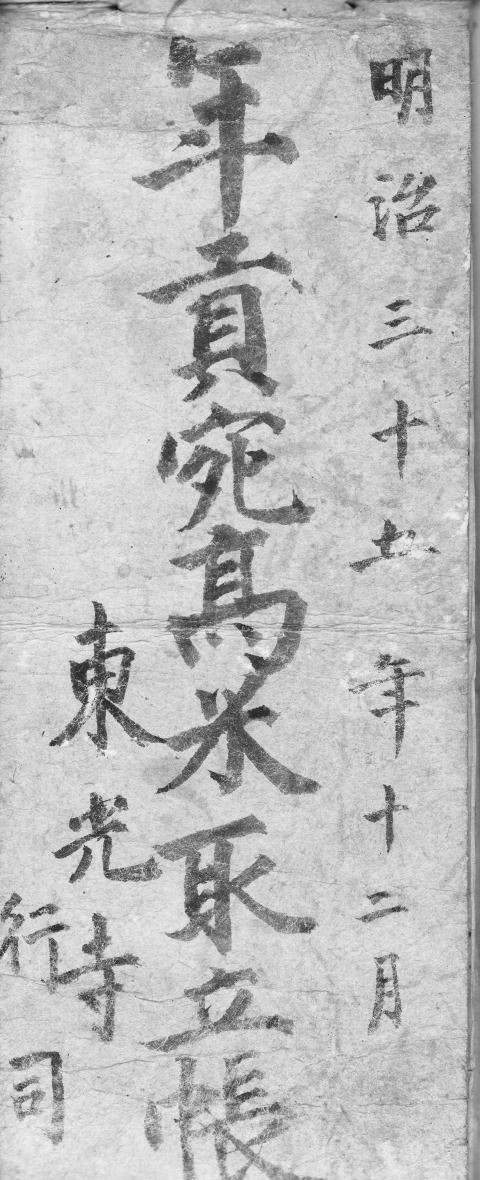 明治三十五年十二月
年貢宛高米取立帳
東光寺
行司